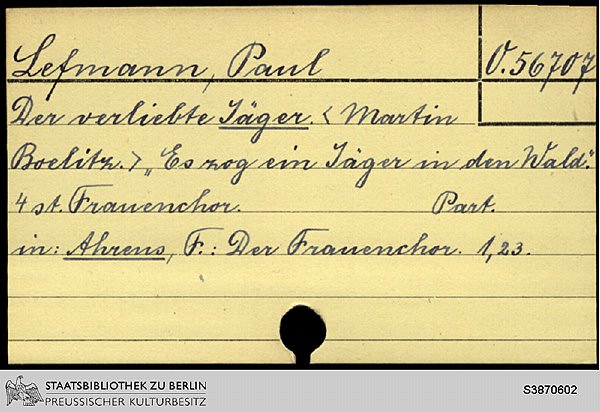 Lefmann, Paul O. 56707
Der verliebte Jäger. < Martin
Boelitz. > „Es zog ein Jäger in den Wald".
4 st. Frauenchor. Part.
in: Ahrens, F.: Der Frauenchor. 1,23.
STAATSBIBLIOTHEK ZU BERLIN
PREUSSISCHER KULTURBESITZ
S3870602